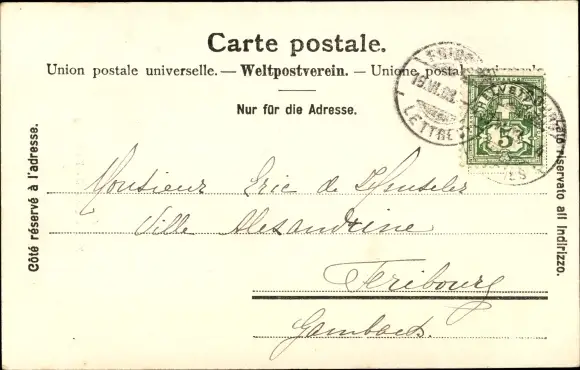 Carte postale.
Union postale universelle. — Weltpostverein. — Unione postale universale
Nur für die Adresse.
Côté réservé à l'adresse.
Lato riservato all indirizzo.
HELVETIA
5
LETTRES
Monsieur Eric de
Ville Alexandrine
Fribourg
Gambach.